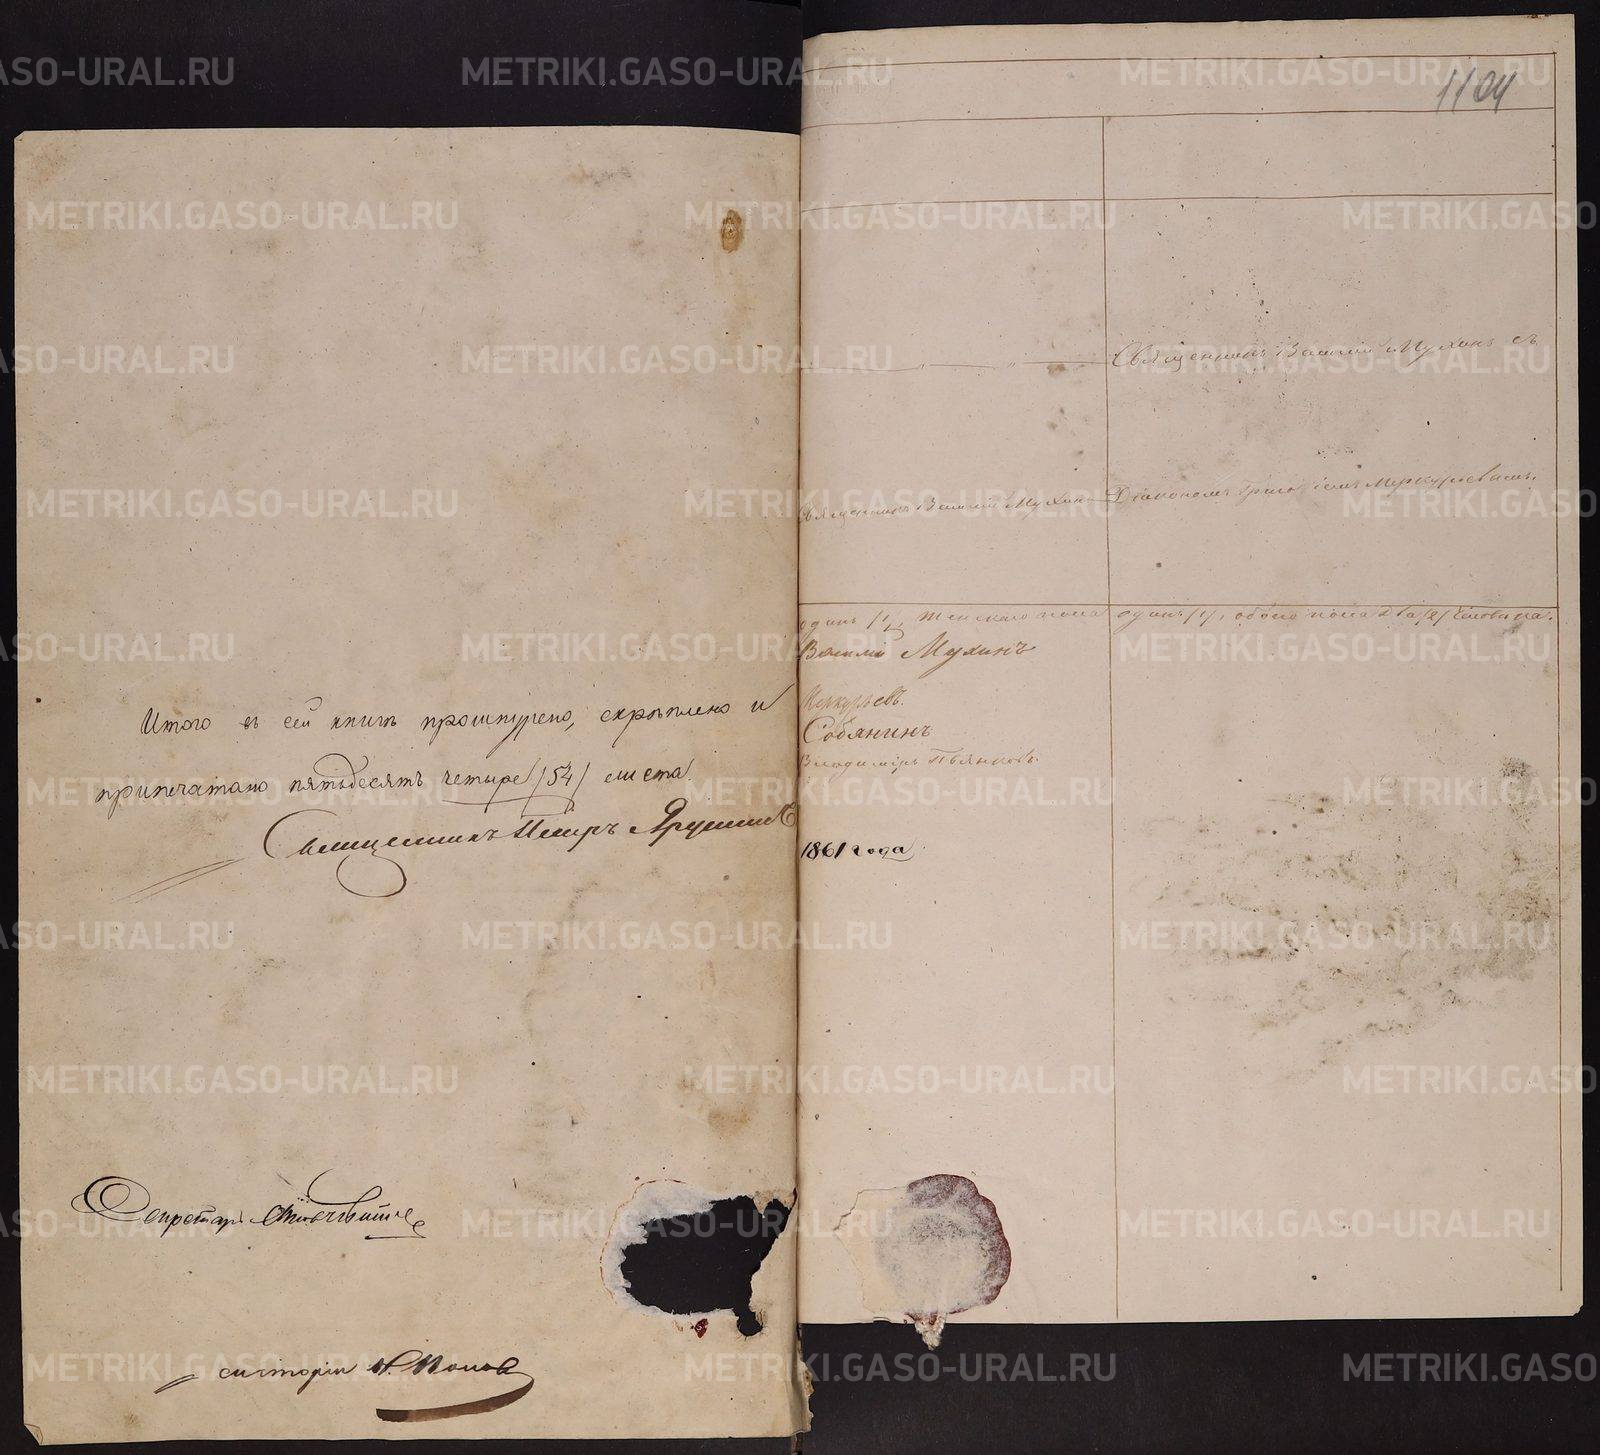 Итого въ сей книгѣ прошнурено, скрѣплено и
припечатано пятьдесятъ четыре /54/ листа.
Священникъ Петръ
Секретарь
систоріи Н. Поповъ
1104
Священникъ Василій Мухинъ съ
Священникъ Василій Мухинъ Діакономъ Меркурьевымъ.
одинъ /1/, женскаго пола одинъ /1/, обоего пола два /2/ человѣка.
Василій Мухинъ
Меркурьевъ.
Собянинъ
Владиміръ Пьянковъ.
1861 года
METRIKI.GASO-URAL.RU